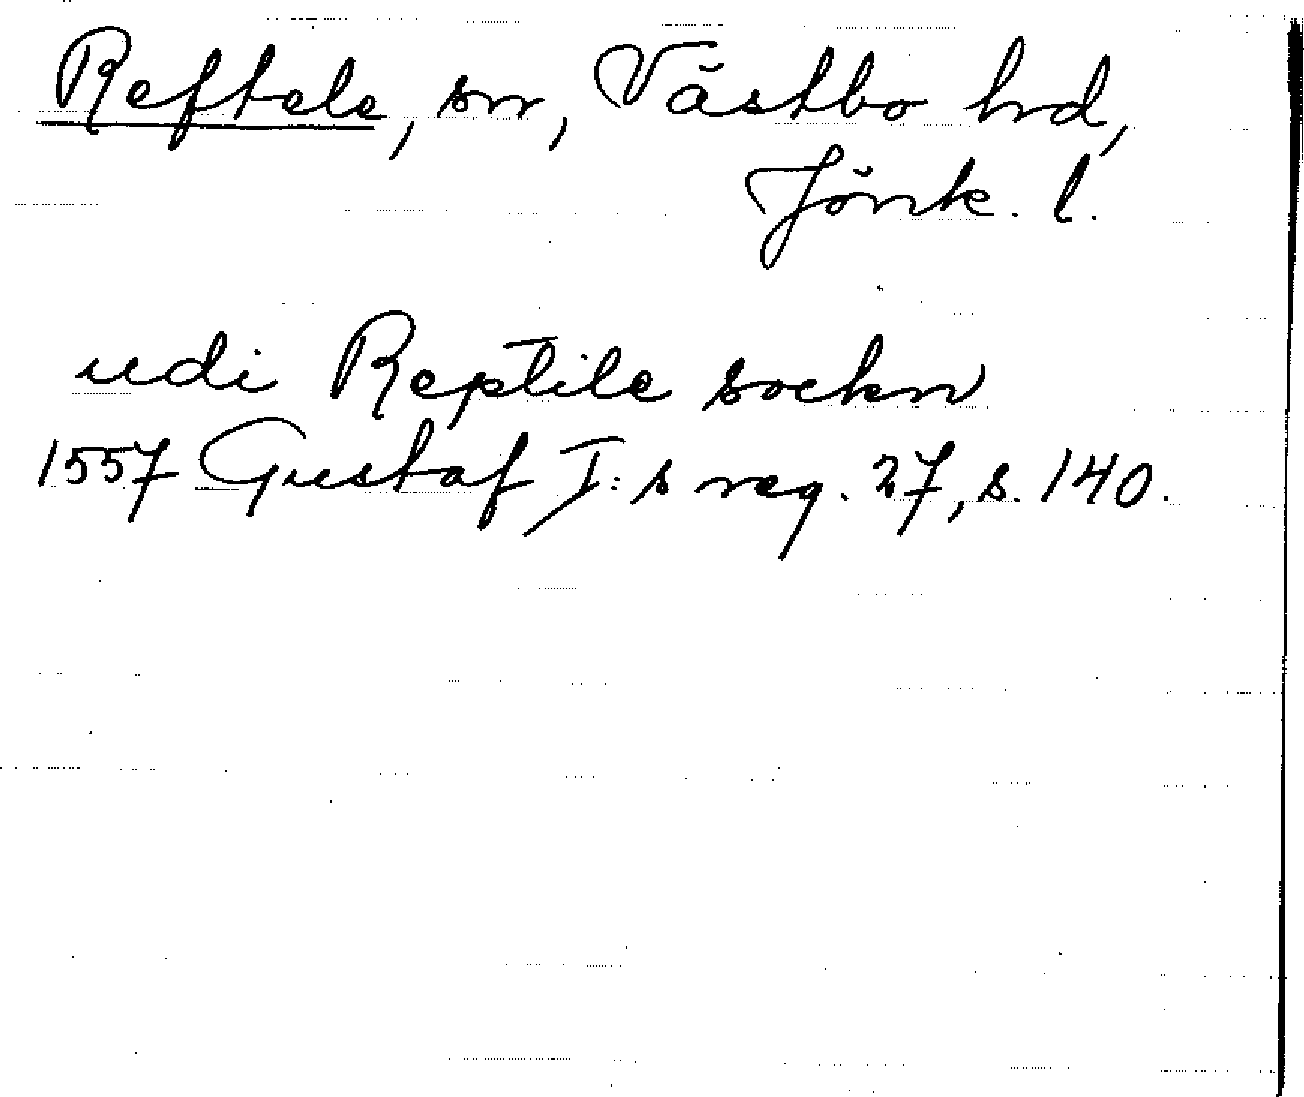 Reftele, sn, Västbo hrd,
Jönk. l.
udi Reptile sockn
1557 Gustaf I:s reg. 27, s. 140.